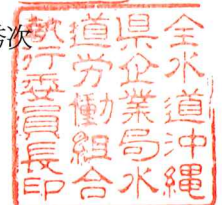 全水道沖縄
県企業局水
道労働組合
執行委員長印
次